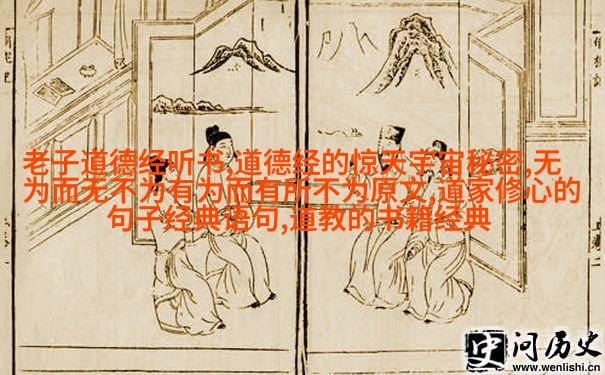 老子道德经听书,道德经的惊天宇宙秘密,无
为而无不为有为而有所不为原文,道家修心的
句子经典语句,道教的书籍经典
史问历史
www.wenlishi.cn